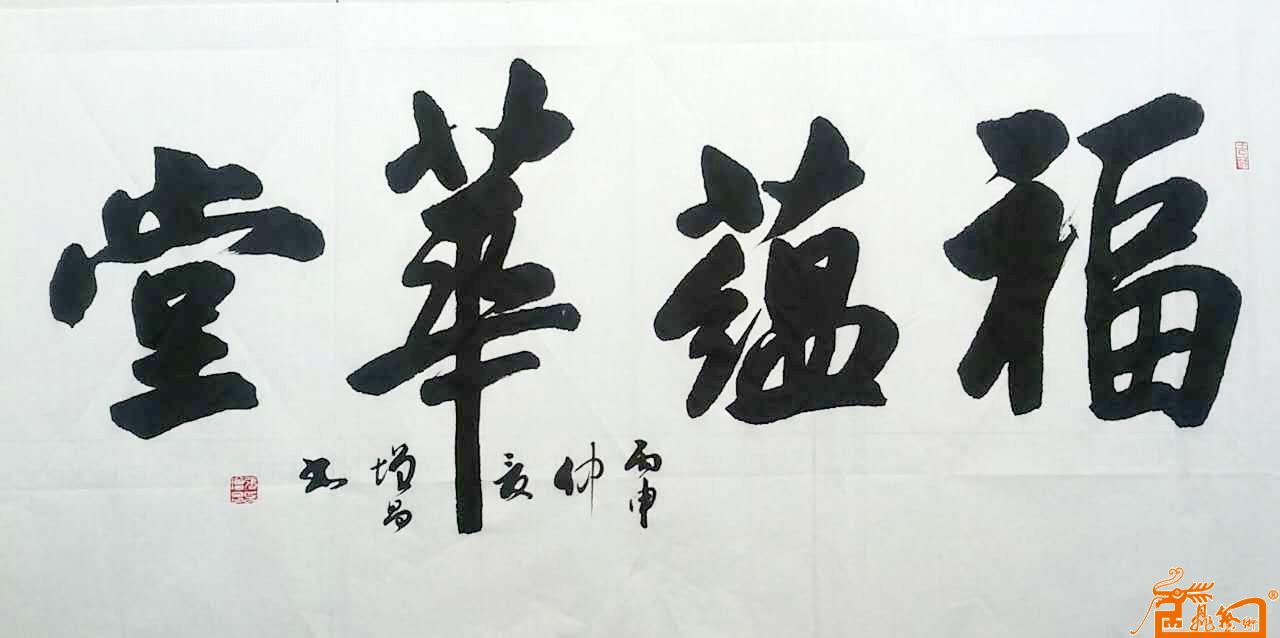 福蕴華堂
丙申仲夏增昌书